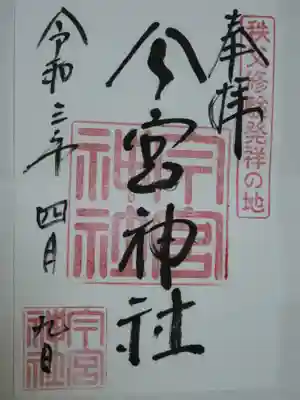 秩父修験発祥の地
奉拝
今宮神社
今宮
神社
令和三年四月
九日
今宮
神社